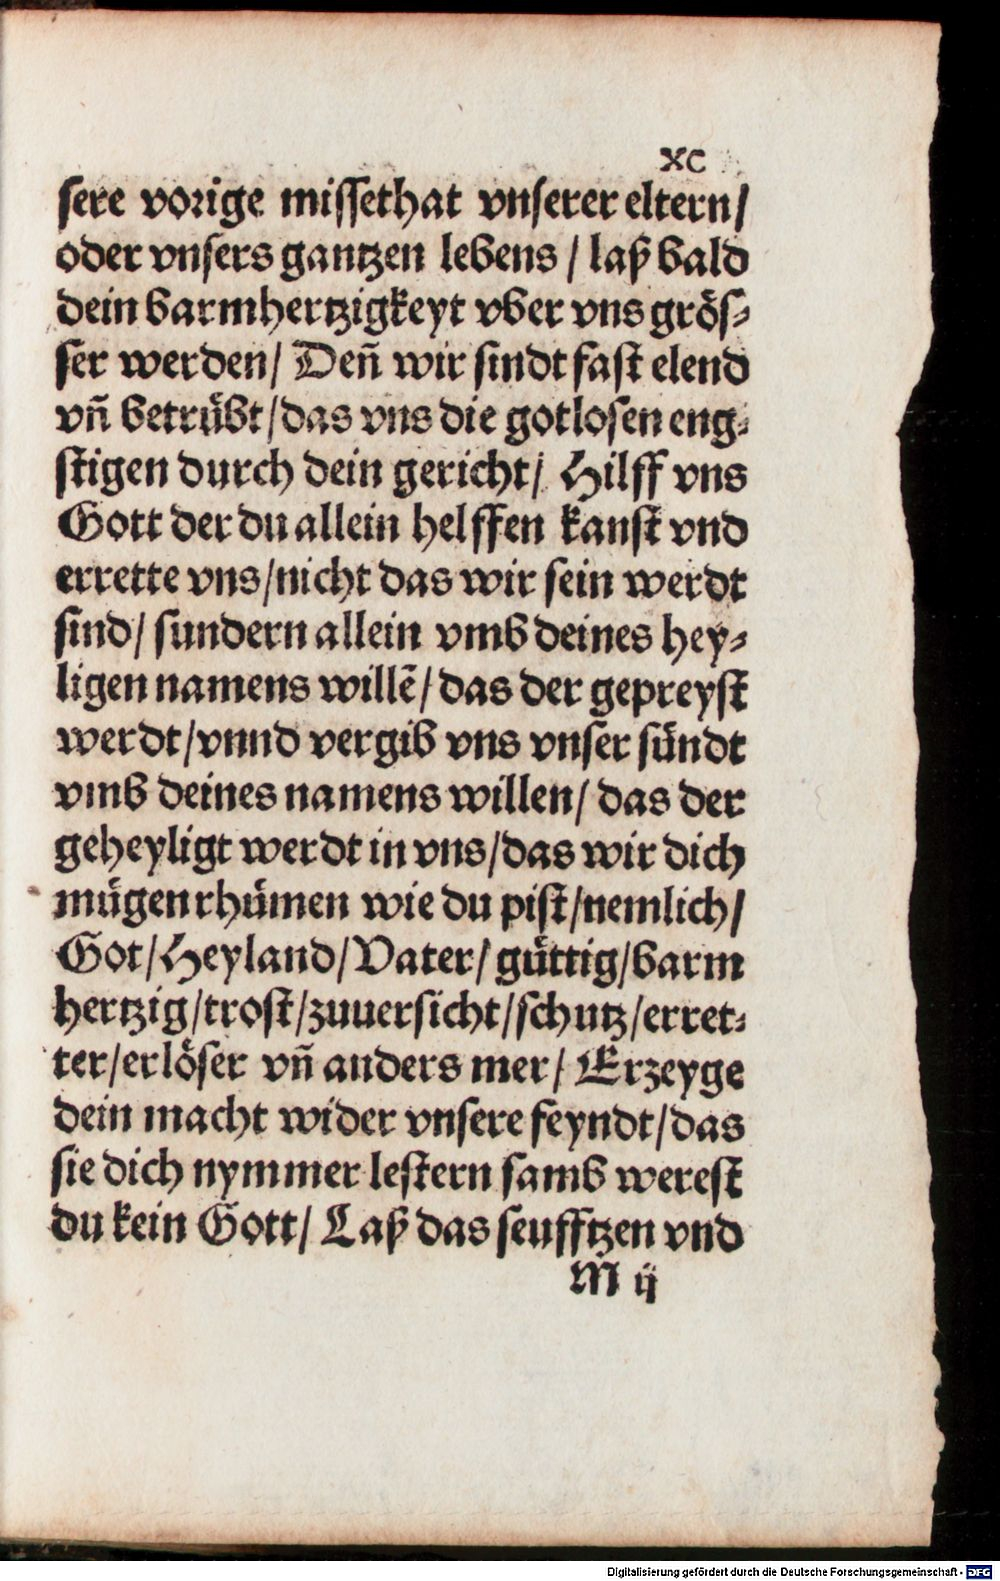 XC
sere vorige missethat vnserer eltern/
oder vnsers gantzen lebens / laß bald
dein barmhertzigkeyt vber vns grös-
ser werden/ Deñ wir sindt fast elend
vñ betrübt/das vns die gotlosen eng-
stigen durch dein gericht/ Hilff vns
Gott der du allein helffen kanst vnd
errette vns/nicht das wir sein werdt
sind/ sundern allein vmb deines hey-
ligen namens willẽ/ das der gepreyst
werdt/vnnd vergib vns vnser sündt
vmb deines namens willen/ das der
geheyligt werdt in vns/das wir dich
mügen rhümen wie du pist/nemlich/
Got/Heyland/Vater/ güttig/barm
hertzig/trost/zuuersicht/schutz/erret-
ter/erlöser vñ anders mer/ Erzeyge
dein macht wider vnsere feyndt/das
sie dich nymmer lestern samb werest
du kein Gott/ Laß das seufftzen vnd
M ij
Digitalisierung gefördert durch die Deutsche Forschungsgemeinschaft - DFG